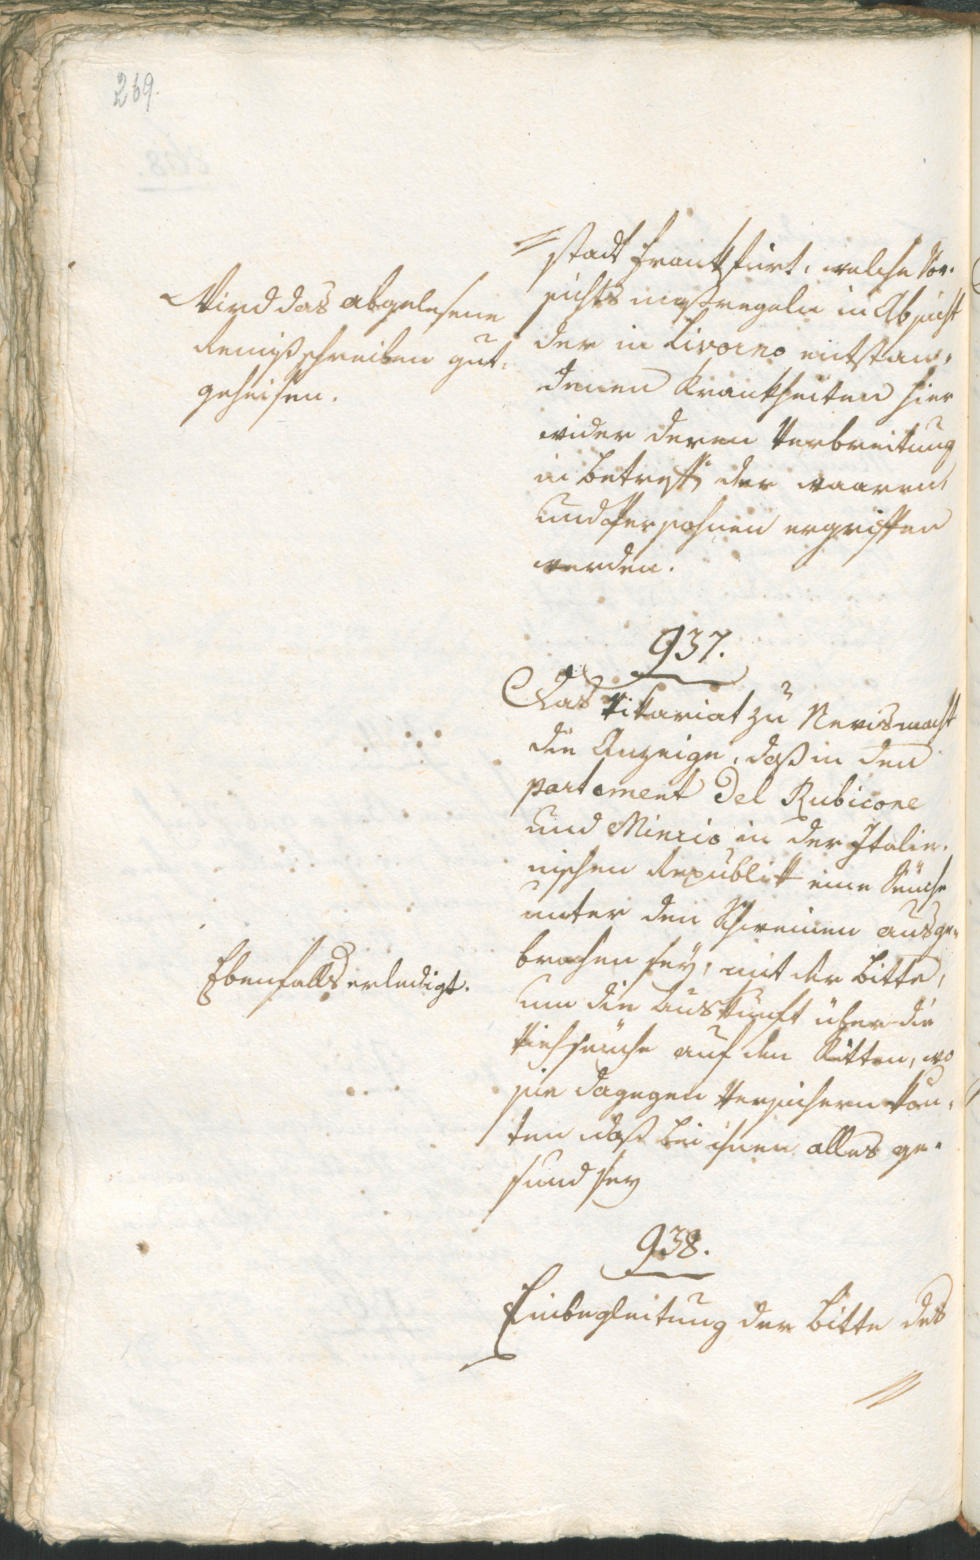 269.
Wird das abgelesene
Remißschreiben gut-
geheisen.
stadt Frankfurt, welche Vor-
sichts maßregeln in Absicht
der in Livorno entstan-
denen Krankheiten hier
wider deren Verbreitung
in betreff der waaren,
und Persohnen ergriffen
werden.
937.
Das Vikariat zu Nevis macht
die Anzeige, daß in den
partament Del Rubicone
und Mincio in der Italie-
nischen Republik eine Seuche
unter den Schweinen ausge-
brochen sey, mit der bitte,
um die Auskunft über die
Viehseuche auf den Ritten, wo
sie dagegen versichern kön-
ten daß bei ihnen alles ge-
sund sey
Ebenfalls erledigt.
938.
Einbegleitung der bitte des